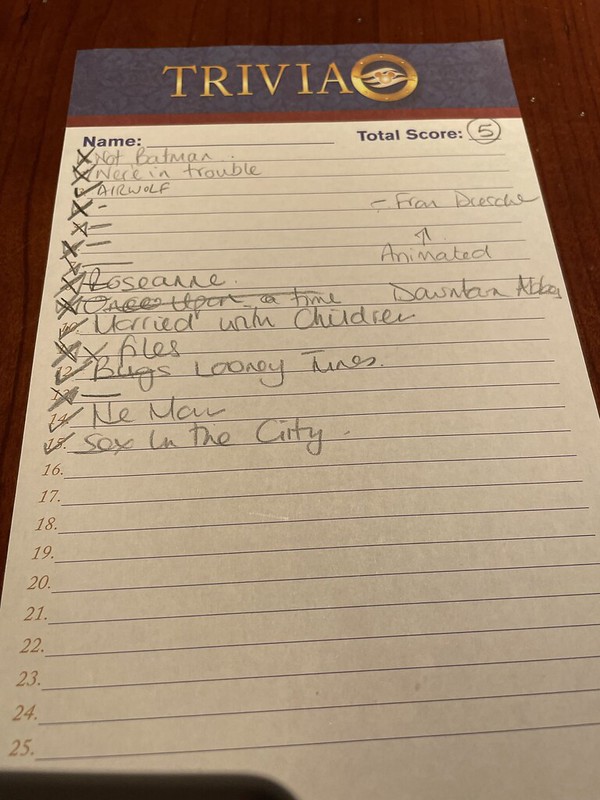 TRIVIA
Name: Total Score: 5
Not Batman.
We're in trouble
AIRWOLF
-
- Fran Dresche
-
-
Animated
Roseanne.
Once Upon a time Downtan Abbey
10. Married with Children
X files
12. Bugs Looney Tunes.
13. -
14. He Man
15. Sex In the City.
16.
17.
18.
19.
20.
21.
22.
23.
24.
25.